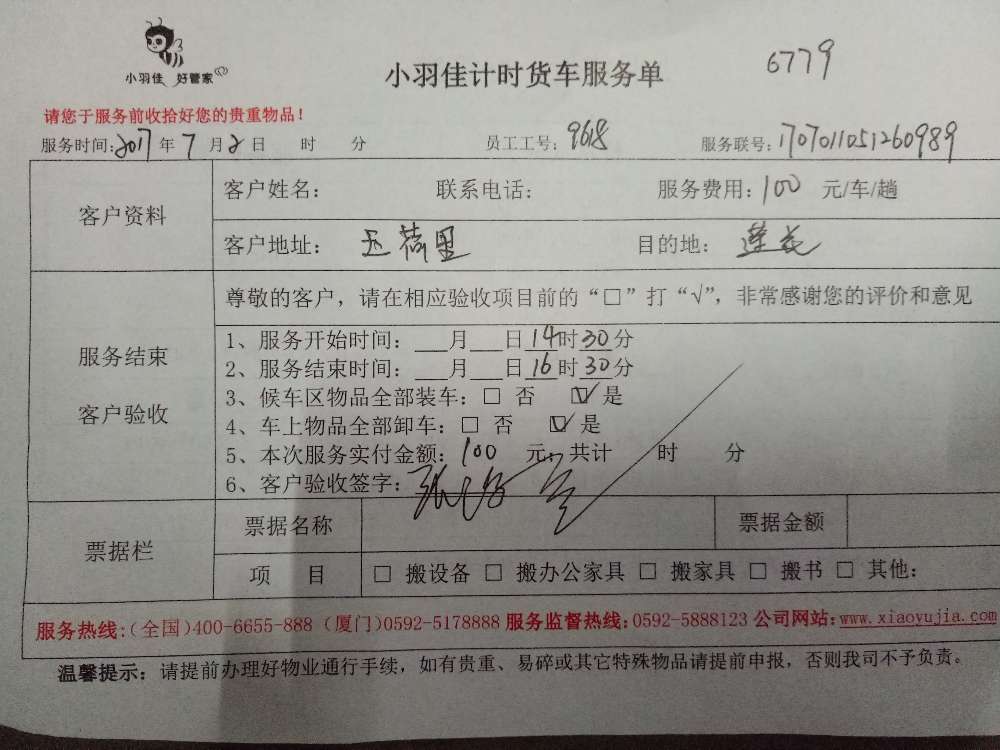 小羽佳 好管家
小羽佳计时货车服务单 6779
请您于服务前收拾好您的贵重物品！
服务时间：2017年7月2日 时 分 员工工号：9618 服务联号：1707011051260989
客户资料
客户姓名： 联系电话： 服务费用：100 元/车/趟
客户地址： 玉荷里 目的地： 莲花
服务结束
客户验收
尊敬的客户，请在相应验收项目前的“□”打“√”，非常感谢您的评价和意见
1、服务开始时间：___月___日14时30分
2、服务结束时间：___月___日16时30分
3、候车区物品全部装车：□ 否 ☑ 是
4、车上物品全部卸车：□ 否 ☑ 是
5、本次服务实付金额：100 元；共计 时 分
6、客户验收签字：
票据栏
票据名称 票据金额
项 目 □ 搬设备 □ 搬办公家具 □ 搬家具 □ 搬书 □ 其他：
服务热线：（全国）400-6655-888（厦门）0592-5178888 服务监督热线：0592-5888123 公司网站：www.xiaoyujia.com
温馨提示：请提前办理好物业通行手续，如有贵重、易碎或其它特殊物品请提前申报，否则我司不予负责。